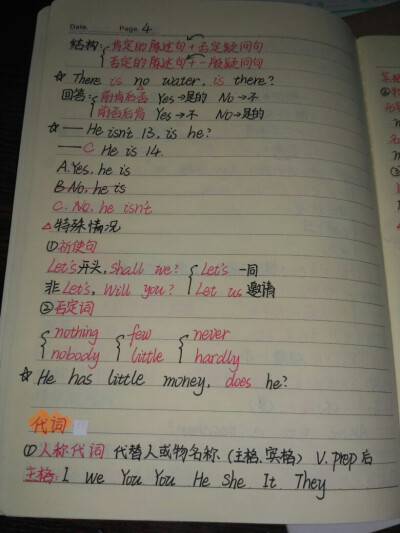 Date. Page. 4
结构: { 肯定的陈述句 + 否定疑问句
否定的陈述句 + 一般疑问句
☆ There is no water, is there?
回答: { 前肯后否 Yes→是的 No→不
前否后肯 Yes→不 No→是的
☆ —— He isn't 13, is he?
—— C He is 14.
A. Yes, he is
B. No, he is
C. No, he isn't
△特殊情况
①祈使句
Let's开头, shall we? { Let's 一同
非Let's, Will you? { Let us 邀请
②否定词
{ nothing { few { never
nobody little hardly
☆ He has little money, does he?
代词
①人称代词 代替人或物名称. (主格、宾格) V. prep后
主格: I we You You He She It They